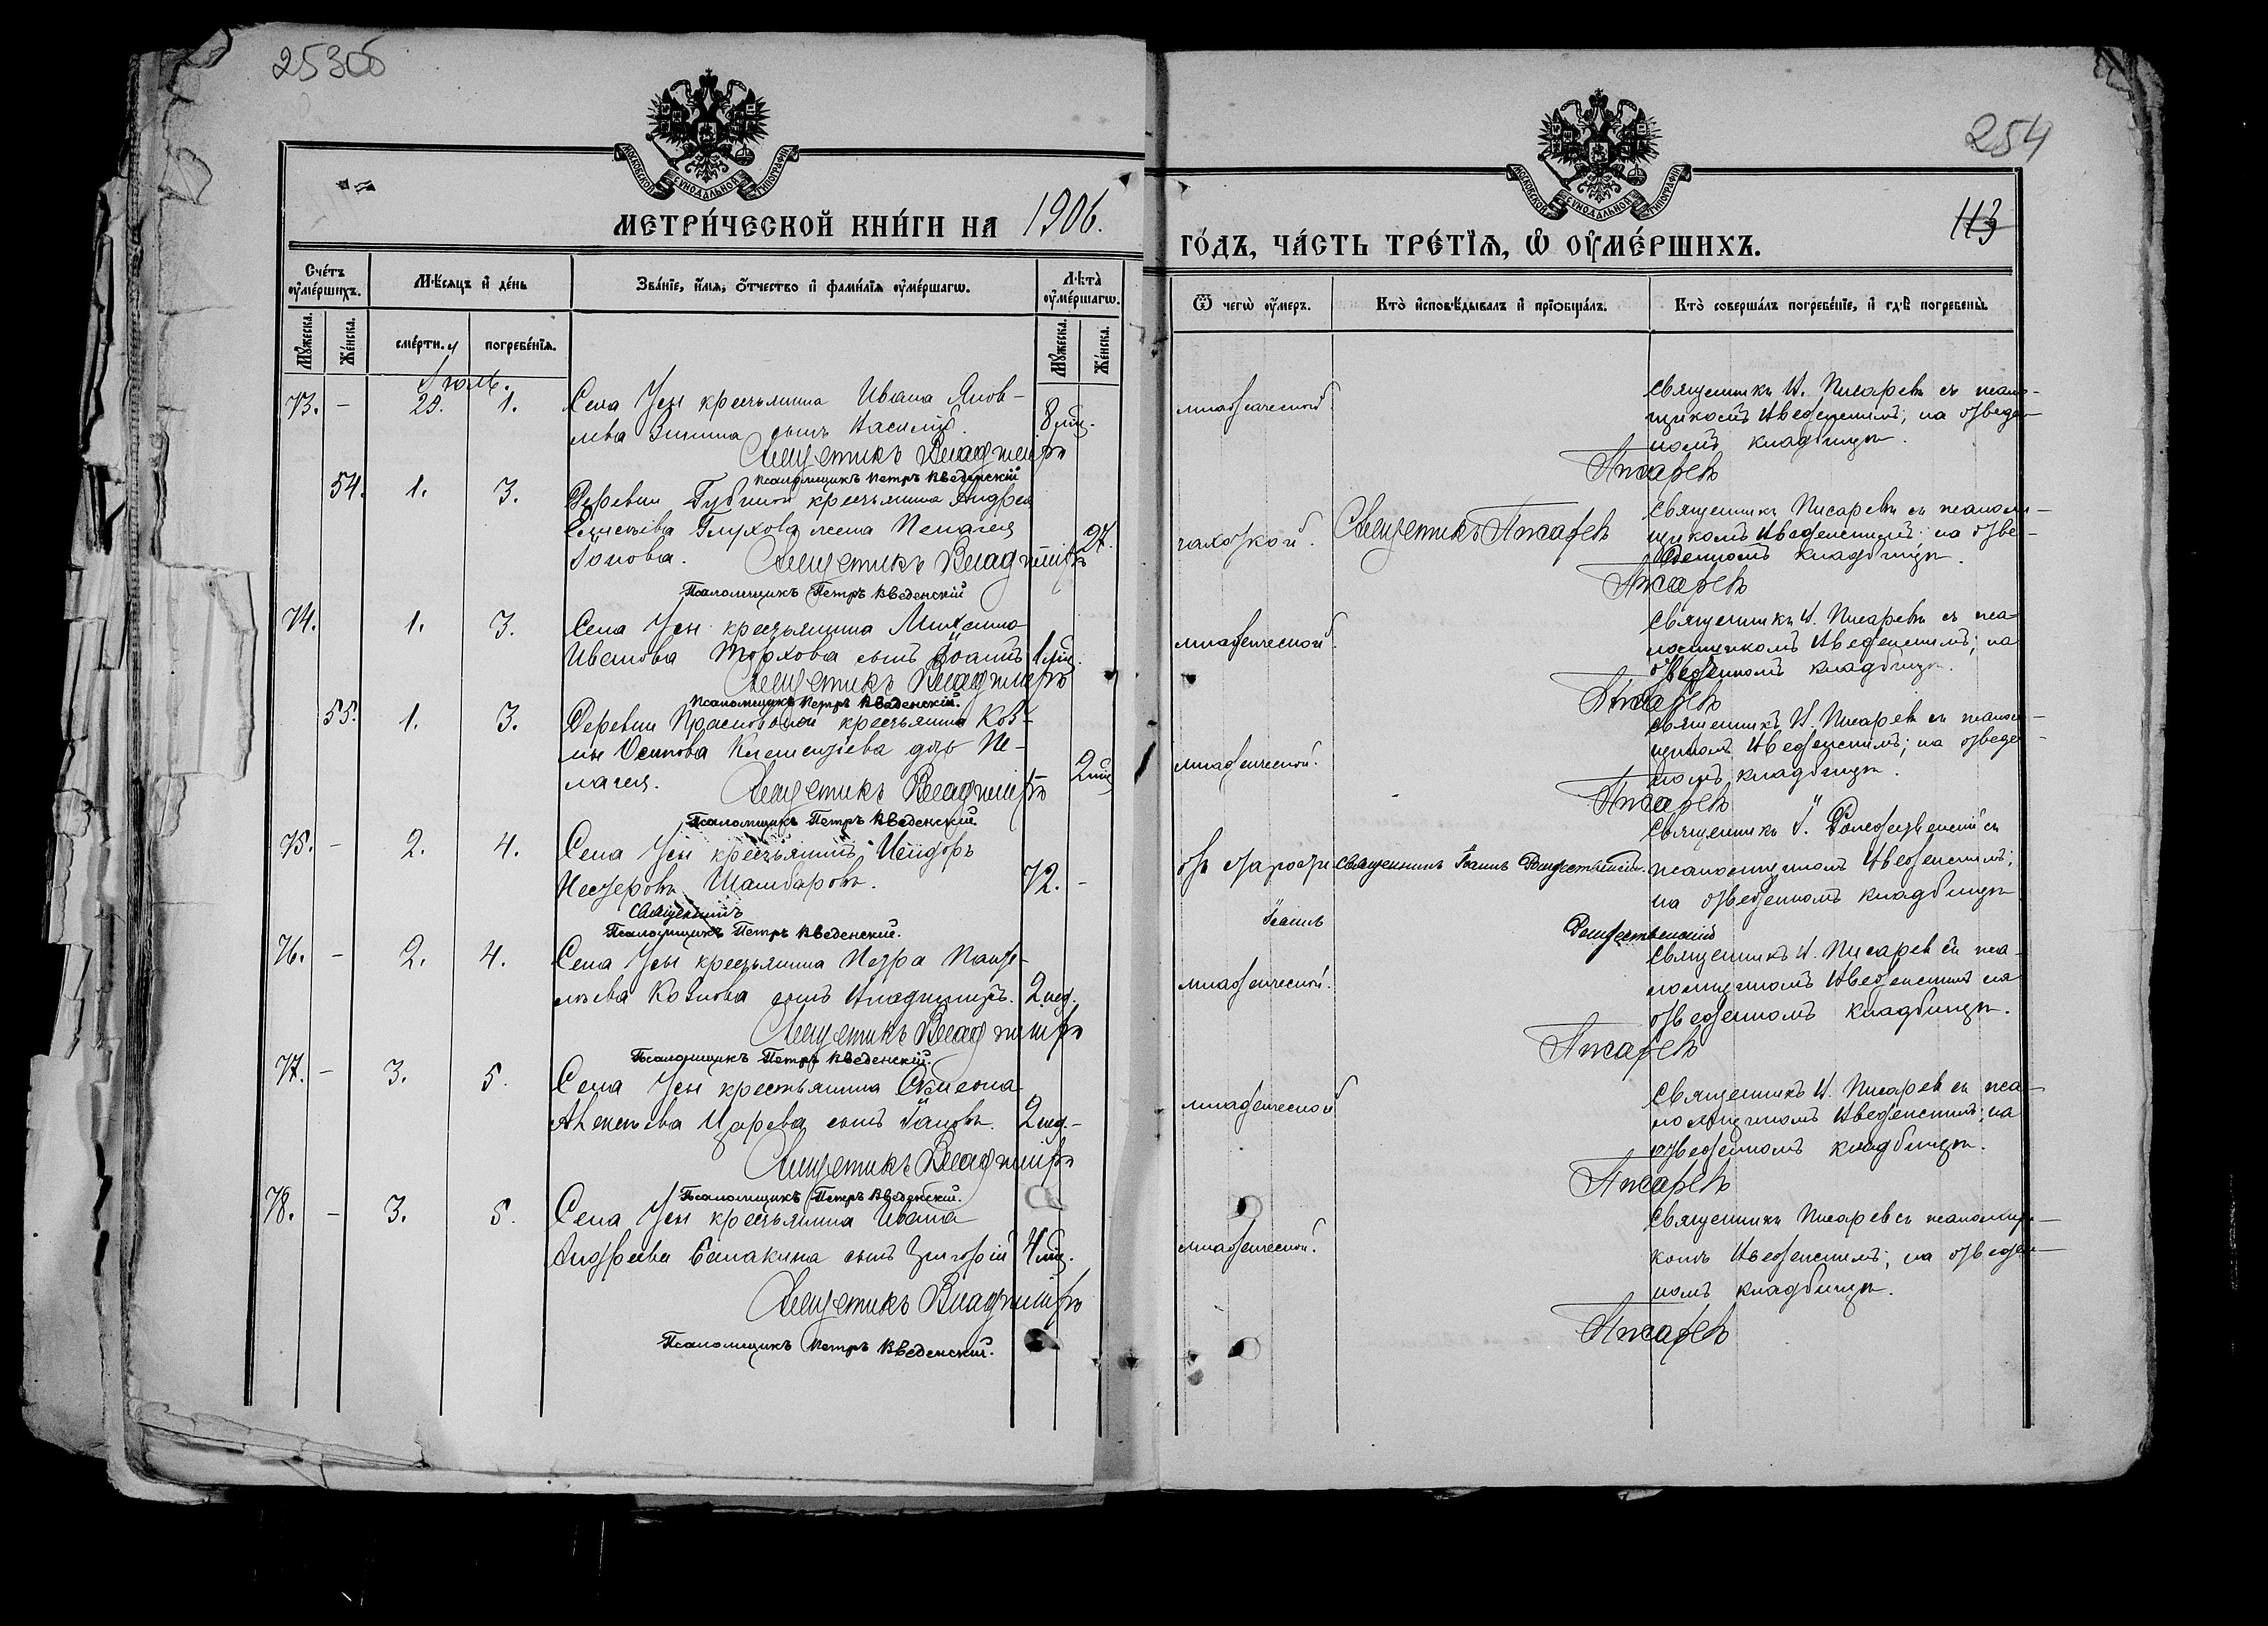 253об
254
113
МОСКОВСКОЙ СУНОДАЛЬНОЙ ТИПОГРАФІИ
МОСКОВСКОЙ СУНОДАЛЬНОЙ ТИПОГРАФІИ
МЕТРИ́ЧЕСКОЙ КНИ́ГИ НА 1906.
ГО́ДЪ, ЧА́СТЬ ТРЕ́ТІѦ, Ѽ ОУ҆МЕ́РШИХЪ.
Сче́тъ оу҆ме́ршихъ.
Мѣ́сяцъ и҆ де́нь
Зва́нїе, и҆́мѧ, ѻ҆́тчество и҆ фами́лїѧ оу҆ме́ршагѡ.
Лѣ́та оу҆ме́ршагѡ.
Ѿ чегѡ̀ оу҆́меръ.
Кто̀ и҆сповѣ́дывалъ и҆ прїѡбща́лъ.
Кто̀ соверша́лъ погребе́нїе, и҆ гдѣ̀ погребены̀.
Мꙋ́жеска.
Же́нска.
сме́рти.
погребе́нїѧ.
Мꙋ́жеска.
Же́нска.
Іюль.
73. - 29. 1. Села Усы крестьянина Ивана Яков-
лева Зинина сынъ Василій. 8 мѣ.
Священникъ Владиміръ
Псаломщикъ Петръ Введенскій
младенческой
Священникъ В. Писаревъ съ псалом-
щикомъ Введенскимъ; на отведен-
номъ кладбищѣ.
Писаревъ
54. 1. 3. Деревни крестьянина Андрея
Глухова жена Пелагея
Іонова. 27.
Священникъ Владиміръ
Псаломщикъ Петръ Введенскій
чахоткой.
Священникъ Писаревъ
Священникъ Писаревъ съ псалом-
щикомъ Введенскимъ; на отве-
денномъ кладбищѣ.
Писаревъ
74. 1. 3. Села Усы крестьянина
Иванова сынъ Іоаннъ 1 мѣ.
Священникъ Владиміръ
Псаломщикъ Петръ Введенскій.
младенческой
Священникъ В. Писаревъ съ пса-
ломщикомъ Введенскимъ; на
отведенномъ кладбищѣ.
Писаревъ
55. 1. 3. Деревни крестьянина Коз-
мы Осипова Климентьева дочь Пе-
лагея. 2 мѣ.
Священникъ Владиміръ
Псаломщикъ Петръ Введенскій.
младенческой.
Священникъ В. Писаревъ съ псалом-
щикомъ Введенскимъ; на отведен-
номъ кладбищѣ.
Писаревъ
75. - 2. 4. Села Усы крестьянинъ Исидоръ
Нестеровъ Шамбаровъ. 72. -
Священникъ
Псаломщикъ Петръ Введенскій.
отъ старости
Священникъ Іоаннъ Рождественскій.
Священникъ І. Рождественскій съ
псаломщикомъ Введенскимъ;
на отведенномъ кладбищѣ
Іоаннъ Рождественскій
76. - 2. 4. Села Усы крестьянина Петра Панте-
лѣева Козлова сынъ Владиміръ. 2 нед.
Священникъ Владиміръ
Псаломщикъ Петръ Введенскій.
младенческой.
Священникъ В. Писаревъ съ пса-
ломщикомъ Введенскимъ на
отведенномъ кладбищѣ.
Писаревъ
77. - 3. 5. Села Усы крестьянина Симеона
Алексѣева Царева сынъ Іаковъ. 2 нед. -
Священникъ Владиміръ
Псаломщикъ Петръ Введенскій.
младенческой
Священникъ В. Писаревъ съ пса-
ломщикомъ Введенскимъ; на
отведенномъ кладбищѣ.
Писаревъ
78. - 3. 5. Села Усы крестьянина Ивана
Андреева Балакина сынъ Григорій 4 мѣ.
Священникъ Владиміръ
Псаломщикъ Петръ Введенскій.
младенческой.
Священникъ Писаревъ съ псаломщи-
комъ Введенскимъ; на отведен-
номъ кладбищѣ.
Писаревъ